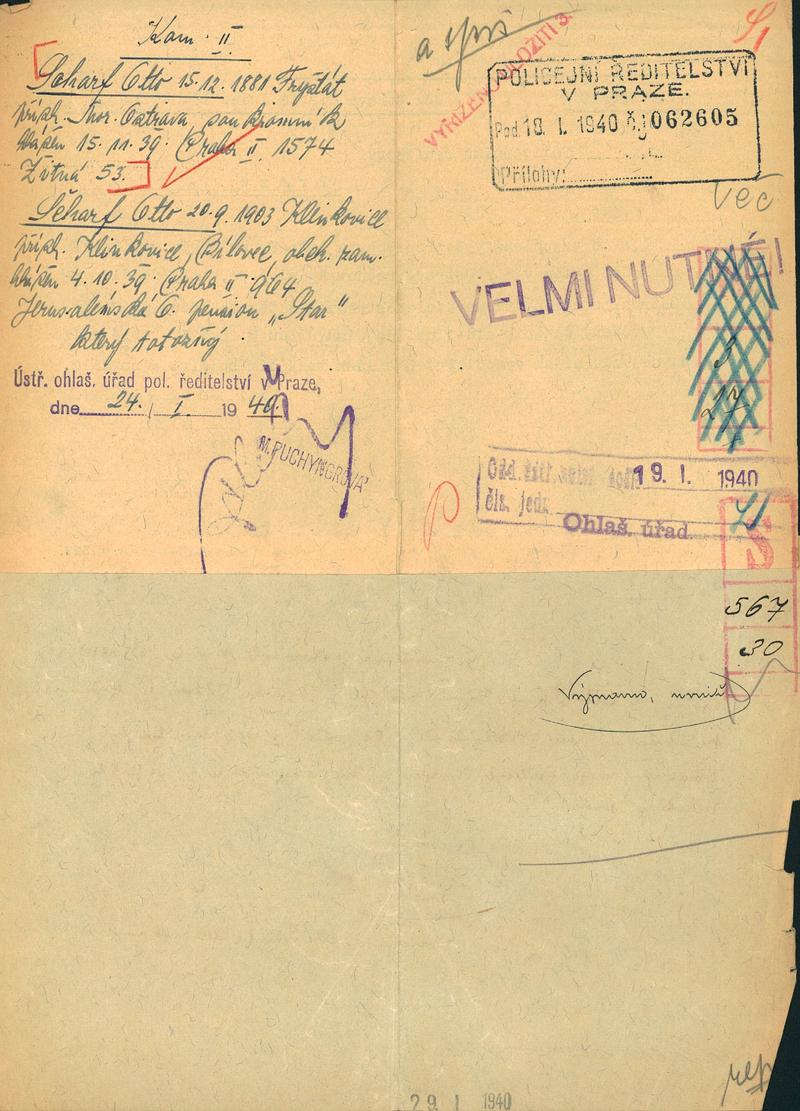 Kom. II
Scharf Otto 15.12.1881 Fryštát
přísl. Mor. Ostrava, soukromník
hlášen 15.11.39. Praha II. 1574
Žitná 53.
Scharf Otto 20.9.1903 Klimkovice
přísl. Klimkovice, Bílovec, obch. zam.
hlášen 4.10.39. Praha II 964
Jerusalemská 6. pension „Star"
který totožný.
Ústř. ohlaš. úřad pol. ředitelství v Praze,
dne 24. I. 1940.
M. PUCHYNGROVÁ
a spis
VYŘÍZENO ULOŽITI
POLICEJNÍ ŘEDITELSTVÍ
V PRAZE.
Pod. 18. I. 1940 č.j 062605
Přílohy:
Věc
VELMI NUTNÉ!
3
19. I. 1940
čís. jedn.
Ohlaš. úřad
S
567
30
29. I 1940